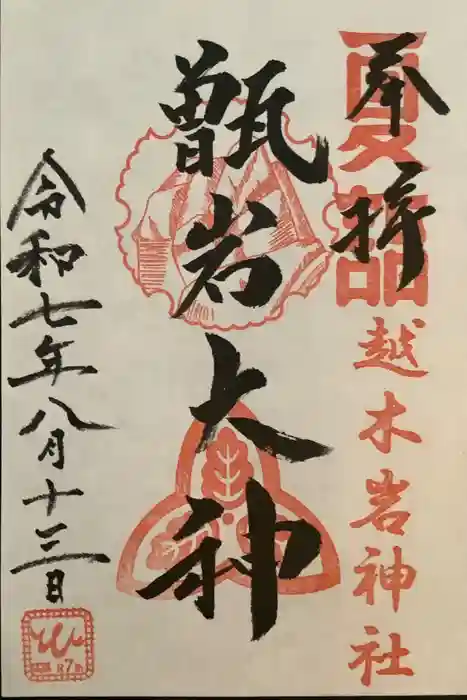 奉拝
夏詣
越木岩神社
甑岩大神
令和七年八月十三日
R7